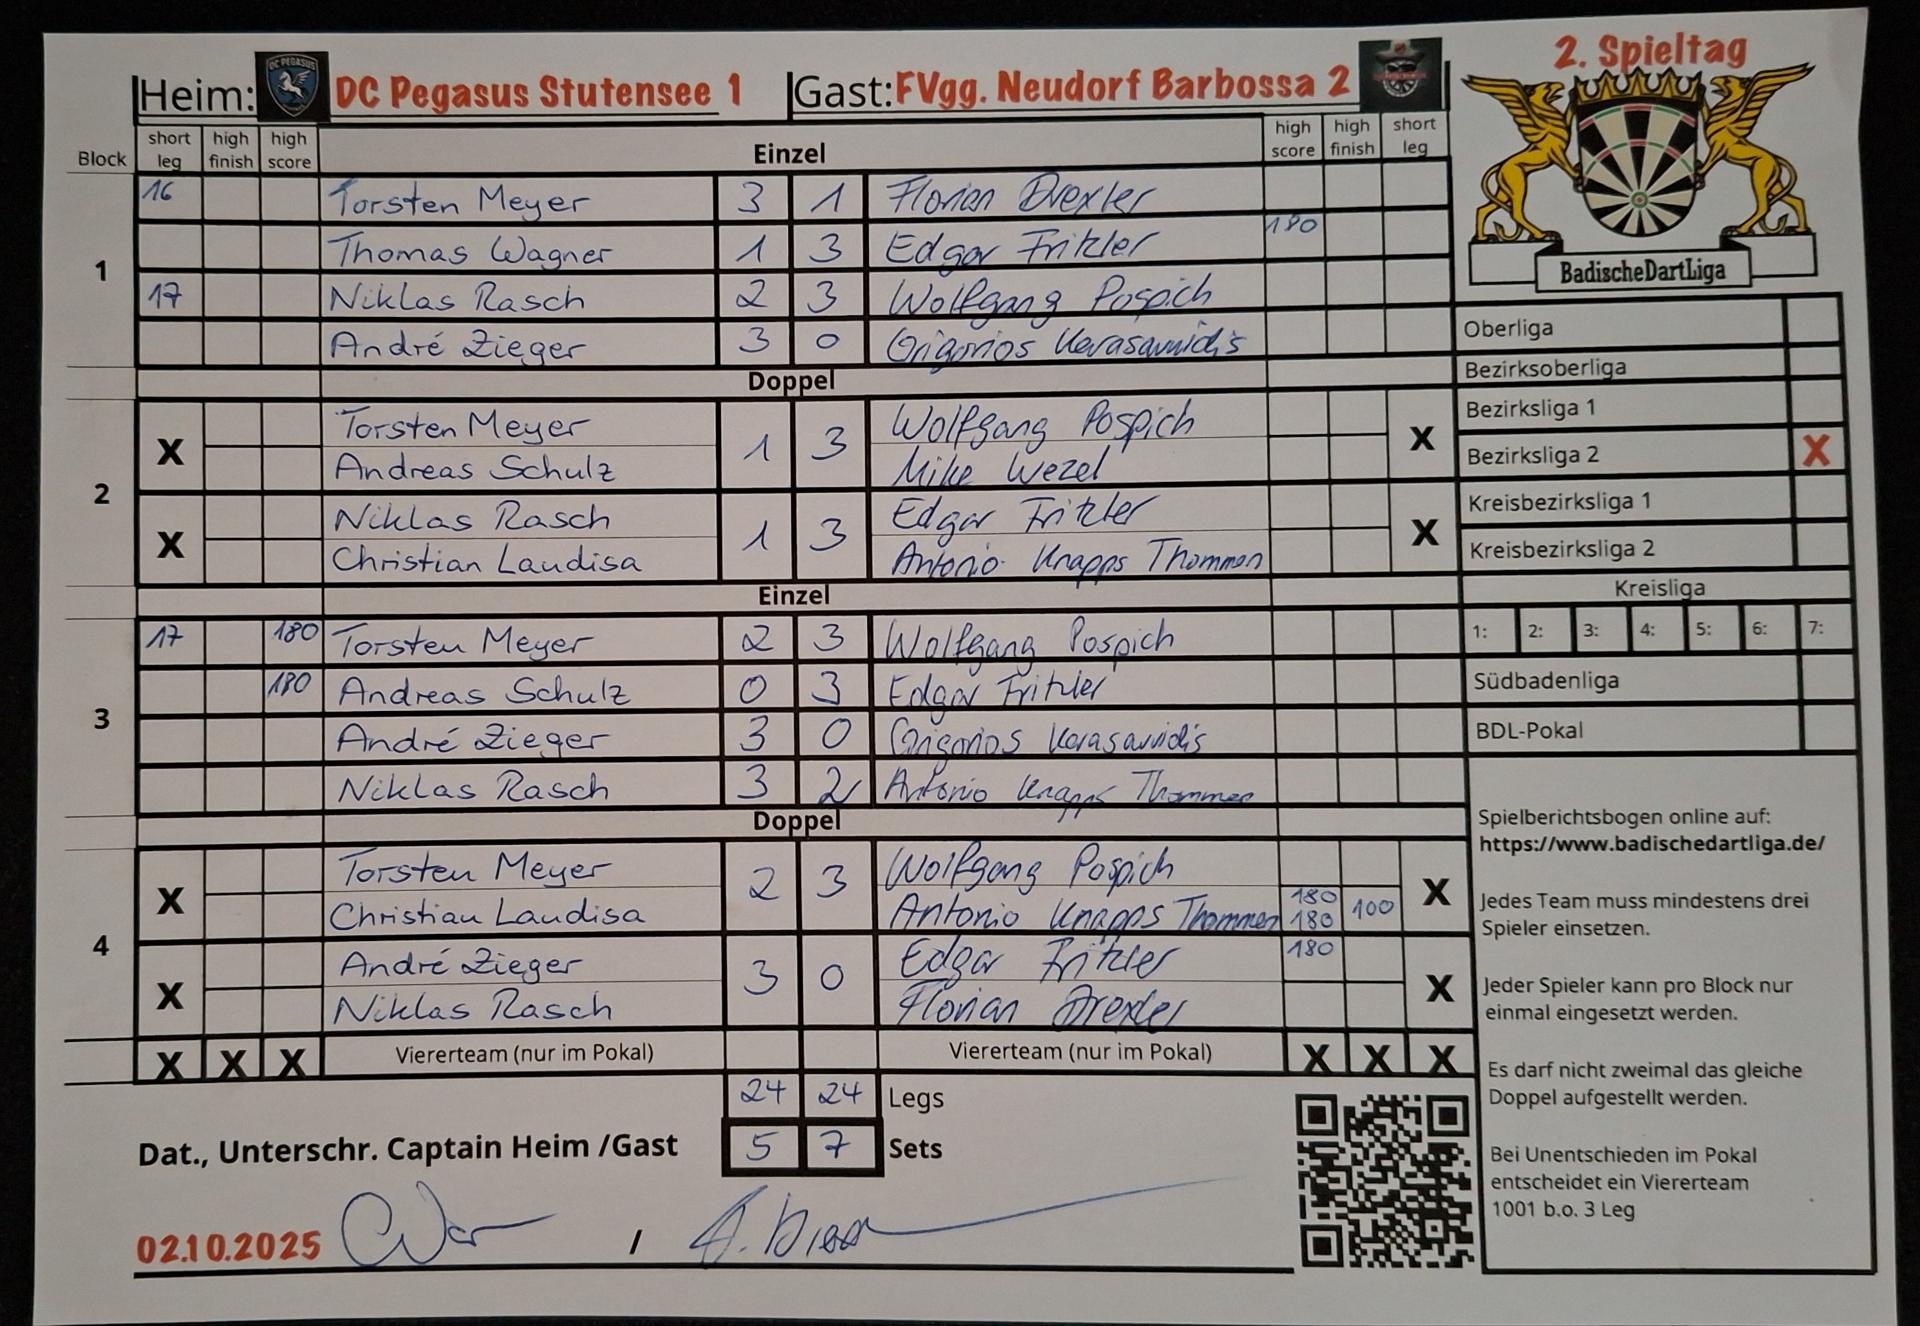 2. Spieltag
Heim: DC PEGASUS DC Pegasus Stutensee 1 Gast: FVgg. Neudorf Barbossa 2
Block short leg high finish high score Einzel high score high finish short leg
1
16 Torsten Meyer 3 1 Florian Drexler
Thomas Wagner 1 3 Edgar Fritzler 180
17 Niklas Rasch 2 3 Wolfgang Pospich
André Zieger 3 0 Grigorios Karasavvidis
Doppel
2
X Torsten Meyer 1 3 Wolfgang Pospich X
Andreas Schulz Mike Wezel
X Niklas Rasch 1 3 Edgar Fritzler X
Christian Laudisa Antonio Knapps Thommen
Einzel
3
17 180 Torsten Meyer 2 3 Wolfgang Pospich
180 Andreas Schulz 0 3 Edgar Fritzler
André Zieger 3 0 Grigorios Karasavvidis
Niklas Rasch 3 2 Antonio Knapps Thommen
Doppel
4
X Torsten Meyer 2 3 Wolfgang Pospich X
Christian Laudisa Antonio Knapps Thommen 180 180 100
X André Zieger 3 0 Edgar Fritzler 180 X
Niklas Rasch Florian Drexler
X X X Viererteam (nur im Pokal) Viererteam (nur im Pokal) X X X
24 24 Legs
Dat., Unterschr. Captain Heim /Gast 5 7 Sets
02.10.2025 /
BadischeDartLiga
Oberliga
Bezirksoberliga
Bezirksliga 1
Bezirksliga 2 X
Kreisbezirksliga 1
Kreisbezirksliga 2
Kreisliga
1: 2: 3: 4: 5: 6: 7:
Südbadenliga
BDL-Pokal
Spielberichtsbogen online auf:
https://www.badischedartliga.de/
Jedes Team muss mindestens drei
Spieler einsetzen.
Jeder Spieler kann pro Block nur
einmal eingesetzt werden.
Es darf nicht zweimal das gleiche
Doppel aufgestellt werden.
Bei Unentschieden im Pokal
entscheidet ein Viererteam
1001 b.o. 3 Leg